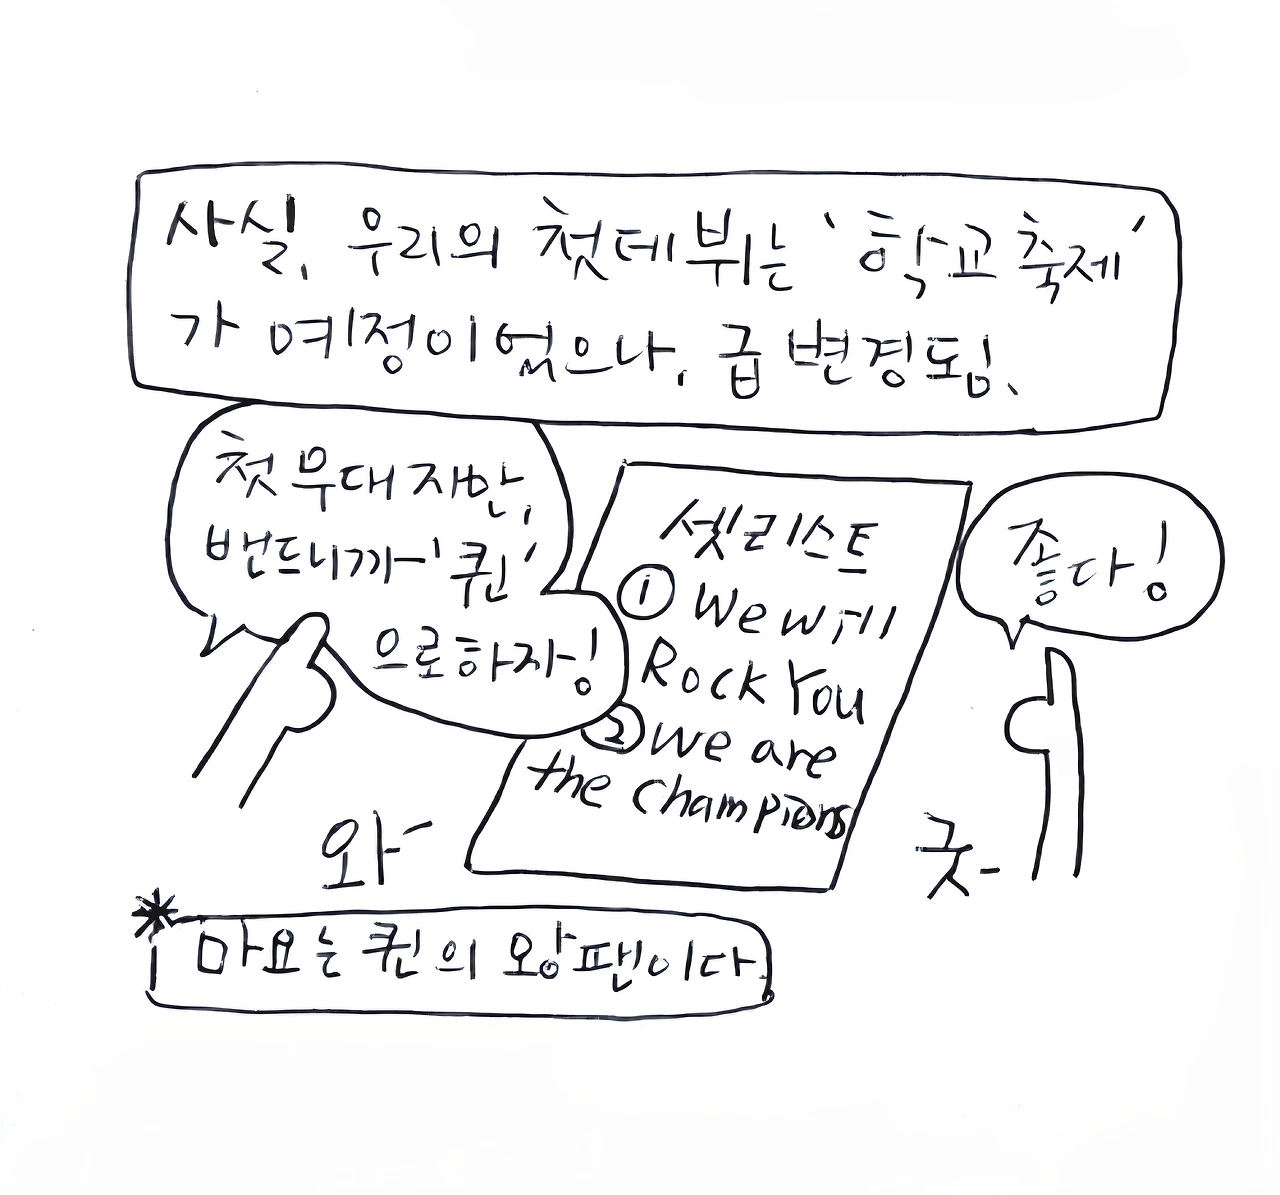 사실, 우리의 첫데뷔는 '학교축제'
가 예정이었으나, 급 변경됨.
첫 무대지만,
밴드니까~'퀸'
으로하자!
셋리스트
① We will
Rock You
② we are
the champions
좋다!
와-
굿-
* 마요는 퀸의 왕팬이다.